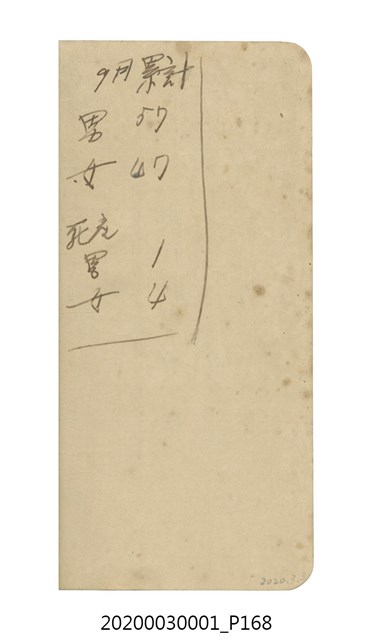 9月 累計
男 57
女 47
死産
男 1
女 4
2020.3.
20200030001_P168